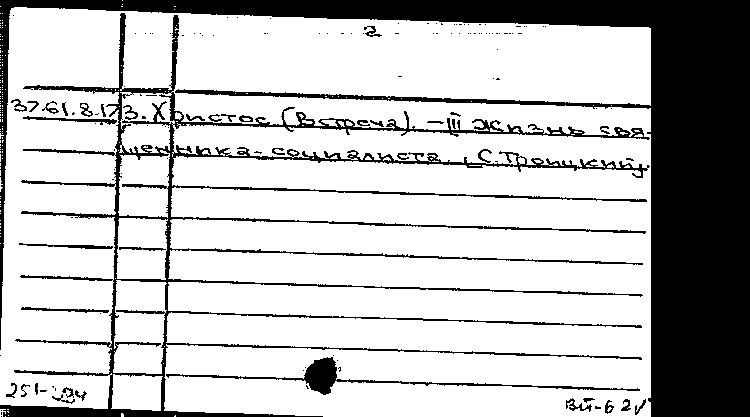 2
37.61.8.173. Христос (Встреча). – III Жизнь свя-
щенника-социалиста., С. Троицкий,